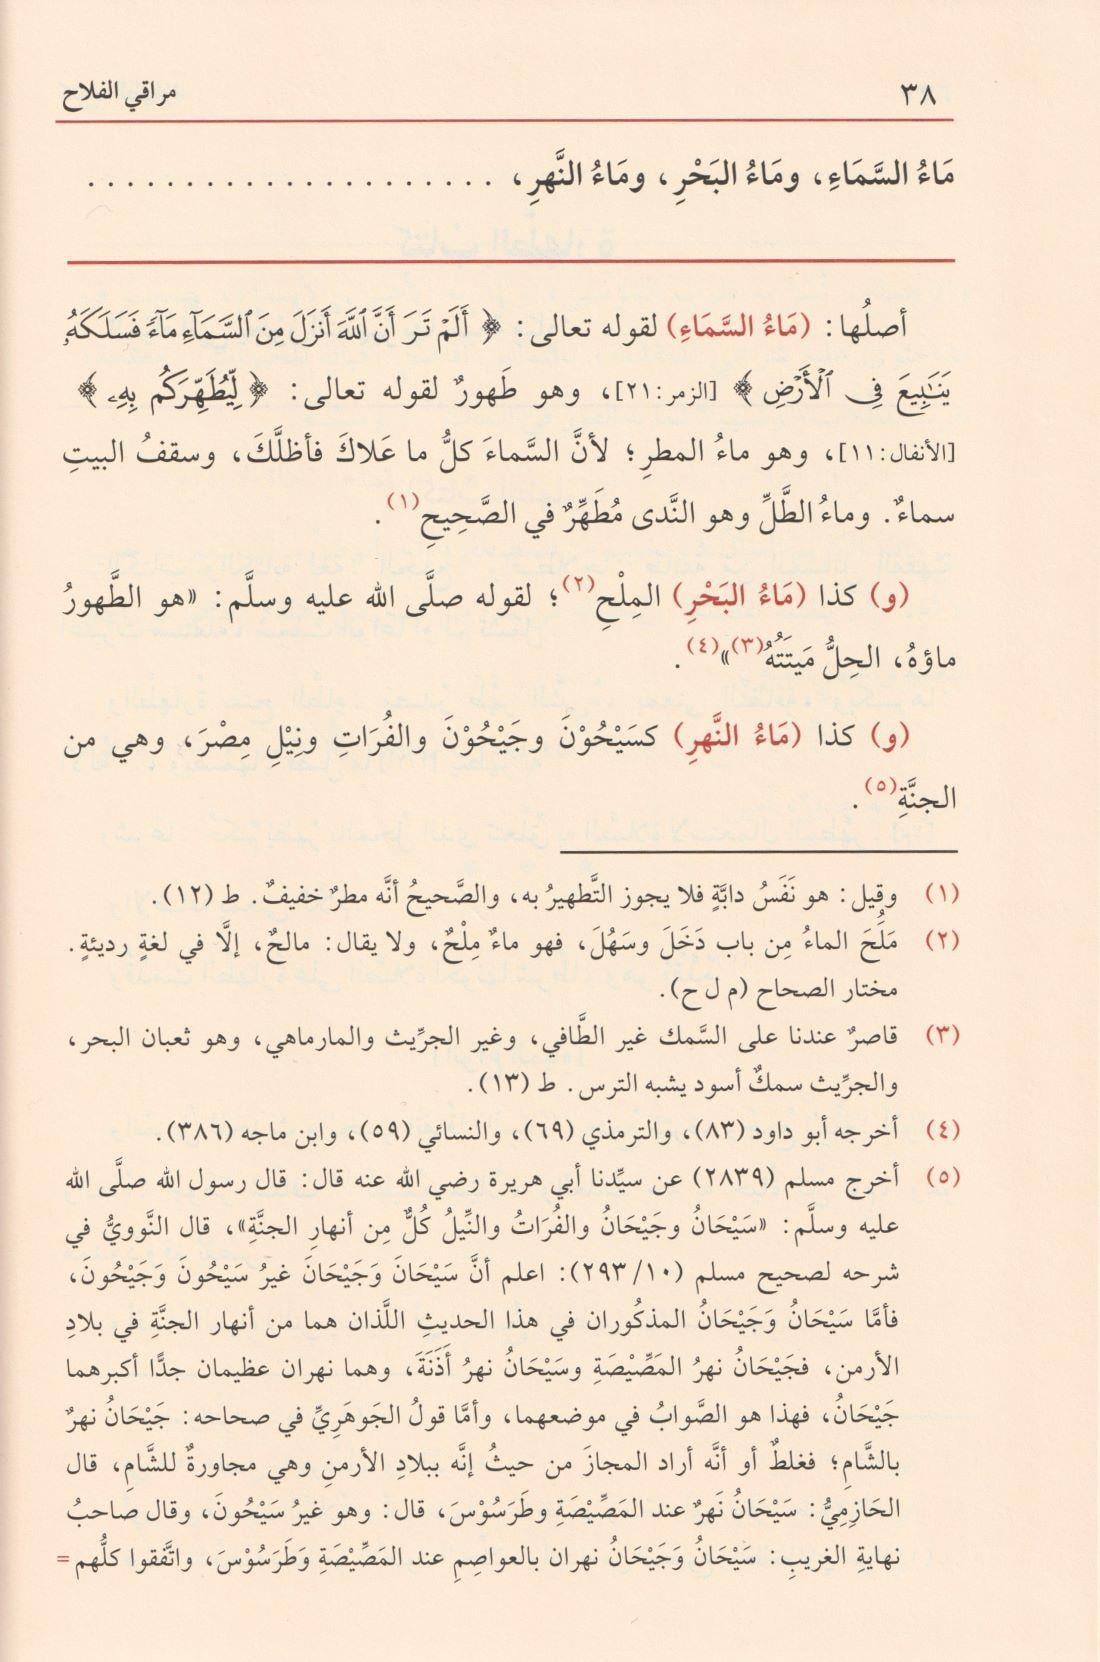 ٣٨
مراقي الفلاح
مَاءُ السَّمَاءِ، ومَاءُ البَحْرِ، ومَاءُ النَّهرِ، . . . . . . . . . . . . . . . . . . . . .
أصلُها: (مَاءُ السَّمَاءِ) لقوله تعالى: ﴿ أَلَمْ تَرَ أَنَّ ٱللَّهَ أَنزَلَ مِنَ ٱلسَّمَآءِ مَآءً فَسَلَكَهُۥ
يَنَٰبِيعَ فِى ٱلْأَرْضِ ﴾ [الزمر: ٢١]، وهو طَهورٌ لقوله تعالى: ﴿ لِّيُطَهِّرَكُم بِهِۦ ﴾
[الأنفال: ١١]، وهو ماءُ المطرِ؛ لأنَّ السَّماءَ كلُّ ما عَلاكَ فأظلَّكَ، وسقفُ البيتِ
سماءٌ. وماءُ الطَّلِّ وهو النَّدى مُطَهِّرٌ في الصَّحِيحِ(١).
(و) كذا (مَاءُ البَحْرِ) المِلْحِ(٢)؛ لقوله صلَّى الله عليه وسلَّم: «هو الطَّهورُ
ماؤهُ، الحِلُّ مَيتَتُهُ(٣)»(٤).
(و) كذا (مَاءُ النَّهرِ) كسَيْحُوْنَ وجَيْحُوْنَ والفُرَاتِ ونِيْلِ مِصْرَ، وهي من
الجنَّةِ(٥).
(١) وقيل: هو نَفَسُ دابَّةٍ فلا يجوز التَّطهيرُ به، والصَّحيحُ أنَّه مطرٌ خفيفٌ. ط (١٢).
(٢) مَلُحَ الماءُ مِن باب دَخَلَ وسَهُلَ، فهو ماءٌ مِلْحٌ، ولا يقال: مالحٌ، إلَّا في لغةٍ رديئةٍ.
مختار الصحاح (م ل ح).
(٣) قاصرٌ عندنا على السَّمك غير الطَّافي، وغير الجرِّيث والمارماهي، وهو ثعبان البحر،
والجرِّيث سمكٌ أسود يشبه الترس. ط (١٣).
(٤) أخرجه أبو داود (٨٣)، والترمذي (٦٩)، والنسائي (٥٩)، وابن ماجه (٣٨٦).
(٥) أخرج مسلم (٢٨٣٩) عن سيِّدنا أبي هريرة رضي الله عنه قال: قال رسول الله صلَّى الله
عليه وسلَّم: «سَيْحَانُ وجَيْحَانُ والفُرَاتُ والنِّيلُ كُلٌّ مِن أنهارِ الجنَّةِ»، قال النَّوويُّ في
شرحه لصحيح مسلم (١٠/ ٢٩٣): اعلم أنَّ سَيْحَانَ وَجَيْحَانَ غيرُ سَيْحُونَ وَجَيْحُونَ،
فأمَّا سَيْحَانُ وَجَيْحَانُ المذكُوران في هذا الحديثِ اللَّذان هما من أنهار الجنَّةِ في بلادِ
الأرمن، فجَيْحَانُ نهرُ المَصِّيْصَةِ وسَيْحَانُ نهرُ أَذَنَةَ، وهما نهران عظيمان جدًّا أكبرهما
جَيْحَانُ، فهذا هو الصَّوابُ في موضعهما، وأمَّا قولُ الجَوهَرِيِّ في صحاحه: جَيْحَانُ نهرٌ
بالشَّامِ؛ فغلطٌ أو أنَّه أراد المجازَ من حيثُ إنَّه ببلادِ الأرمنِ وهي مجاورةٌ للشَّامِ، قال
الحَازِمِيُّ: سَيْحَانُ نَهرٌ عند المَصِّيْصَةِ وطَرَسُوْسَ، قال: وهو غيرُ سَيْحُونَ، وقال صاحبُ
نهايةِ الغريبِ: سَيْحَانُ وَجَيْحَانُ نهران بالعواصِمِ عند المَصِّيْصَةِ وَطَرَسُوْسَ، واتَّفقوا كلُّهم =